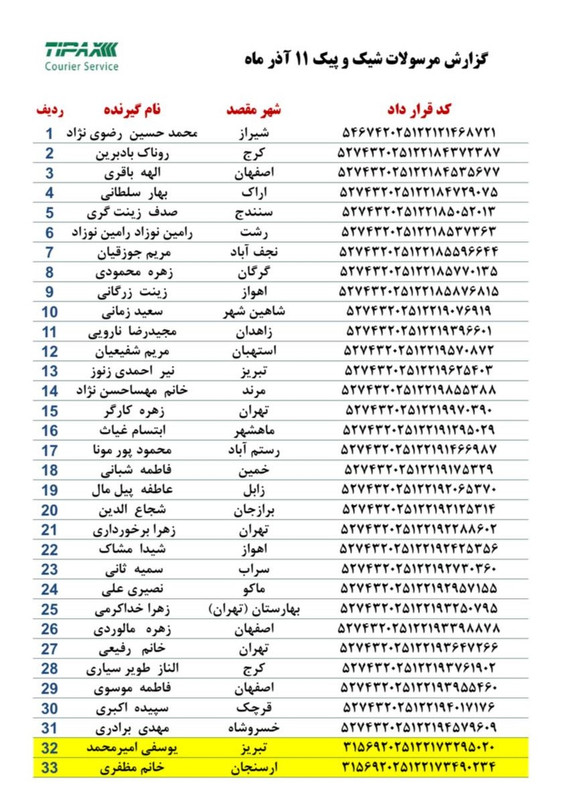 TIPAX
Courier Service
گزارش مرسولات شیک و پیک ۱۱ آذر ماه
ردیف نام گیرنده شهر مقصد کد قرار داد
1 محمد حسین رضوی نژاد شیراز ۵۴۶۷۴۲۰۲۵۱۲۲۱۲۱۴۶۸۷۲۱
2 روناک بادبرین کرج ۵۲۷۴۳۲۰۲۵۱۲۲۱۸۴۳۷۲۳۸۷
3 الهه باقری اصفهان ۵۲۷۴۳۲۰۲۵۱۲۲۱۸۴۵۳۵۶۷۷
4 بهار سلطانی اراک ۵۲۷۴۳۲۰۲۵۱۲۲۱۸۴۷۲۹۰۷۵
5 صدف زینت گری سنندج ۵۲۷۴۳۲۰۲۵۱۲۲۱۸۵۰۵۲۰۱۳
6 رامین نوزاد رامین نوزاد رشت ۵۲۷۴۳۲۰۲۵۱۲۲۱۸۵۳۷۳۶۳
7 مریم جوزقیان نجف آباد ۵۲۷۴۳۲۰۲۵۱۲۲۱۸۵۵۹۶۶۴۴
8 زهره محمودی گرگان ۵۲۷۴۳۲۰۲۵۱۲۲۱۸۵۷۷۰۱۳۵
9 زینت زرگانی اهواز ۵۲۷۴۳۲۰۲۵۱۲۲۱۸۵۸۷۶۸۱۵
10 سعید زمانی شاهین شهر ۵۲۷۴۳۲۰۲۵۱۲۲۱۹۰۷۶۹۱۹
11 مجیدرضا نارویی زاهدان ۵۲۷۴۳۲۰۲۵۱۲۲۱۹۳۹۶۶۰۱
12 مریم شفیعیان استهبان ۵۲۷۴۳۲۰۲۵۱۲۲۱۹۵۷۰۸۷۲
13 نیر احمدی زنوز تبریز ۵۲۷۴۳۲۰۲۵۱۲۲۱۹۶۲۵۴۰۳
14 خانم مهساحسن نژاد مرند ۵۲۷۴۳۲۰۲۵۱۲۲۱۹۸۵۵۳۸۸
15 زهره کارگر تهران ۵۲۷۴۳۲۰۲۵۱۲۲۱۹۹۷۰۳۹۰
16 ابتسام غیاث ماهشهر ۵۲۷۴۳۲۰۲۵۱۲۲۱۹۱۲۹۵۰۲۹
17 محمود پور مونا رستم آباد ۵۲۷۴۳۲۰۲۵۱۲۲۱۹۱۴۶۶۹۸۷
18 فاطمه شبانی خمین ۵۲۷۴۳۲۰۲۵۱۲۲۱۹۱۷۵۳۲۹
19 عاطفه پیل مال زابل ۵۲۷۴۳۲۰۲۵۱۲۲۱۹۲۰۶۵۳۷۰
20 شجاع الدین برازجان ۵۲۷۴۳۲۰۲۵۱۲۲۱۹۲۱۲۵۳۱۴
21 زهرا برخورداری تهران ۵۲۷۴۳۲۰۲۵۱۲۲۱۹۲۲۸۸۶۰۲
22 شیدا مشاک اهواز ۵۲۷۴۳۲۰۲۵۱۲۲۱۹۲۴۲۵۳۵۶
23 سمیه ثانی سراب ۵۲۷۴۳۲۰۲۵۱۲۲۱۹۲۷۳۰۳۶۰
24 نصیری علی ماکو ۵۲۷۴۳۲۰۲۵۱۲۲۱۹۲۹۵۷۱۵۵
25 زهرا خداکرمی بهارستان (تهران) ۵۲۷۴۳۲۰۲۵۱۲۲۱۹۳۲۵۰۷۹۵
26 زهره مالوردی اصفهان ۵۲۷۴۳۲۰۲۵۱۲۲۱۹۳۳۹۸۸۷۸
27 خانم رفیعی تهران ۵۲۷۴۳۲۰۲۵۱۲۲۱۹۳۶۴۷۲۶۶
28 الناز طویر سیاری کرج ۵۲۷۴۳۲۰۲۵۱۲۲۱۹۳۷۶۱۹۰۲
29 فاطمه موسوی اصفهان ۵۲۷۴۳۲۰۲۵۱۲۲۱۹۳۹۵۵۴۶۰
30 سپیده اکبری قرچک ۵۲۷۴۳۲۰۲۵۱۲۲۱۹۴۰۱۷۱۷۶
31 مهدی برادری خسروشاه ۵۲۷۴۳۲۰۲۵۱۲۲۱۹۴۵۷۹۶۰۹
32 یوسفی امیرمحمد تبریز ۳۱۵۶۹۲۰۲۵۱۲۲۱۷۳۲۹۵۰۲۰
33 خانم مظفری ارسنجان ۳۱۵۶۹۲۰۲۵۱۲۲۱۷۳۴۹۰۲۳۴